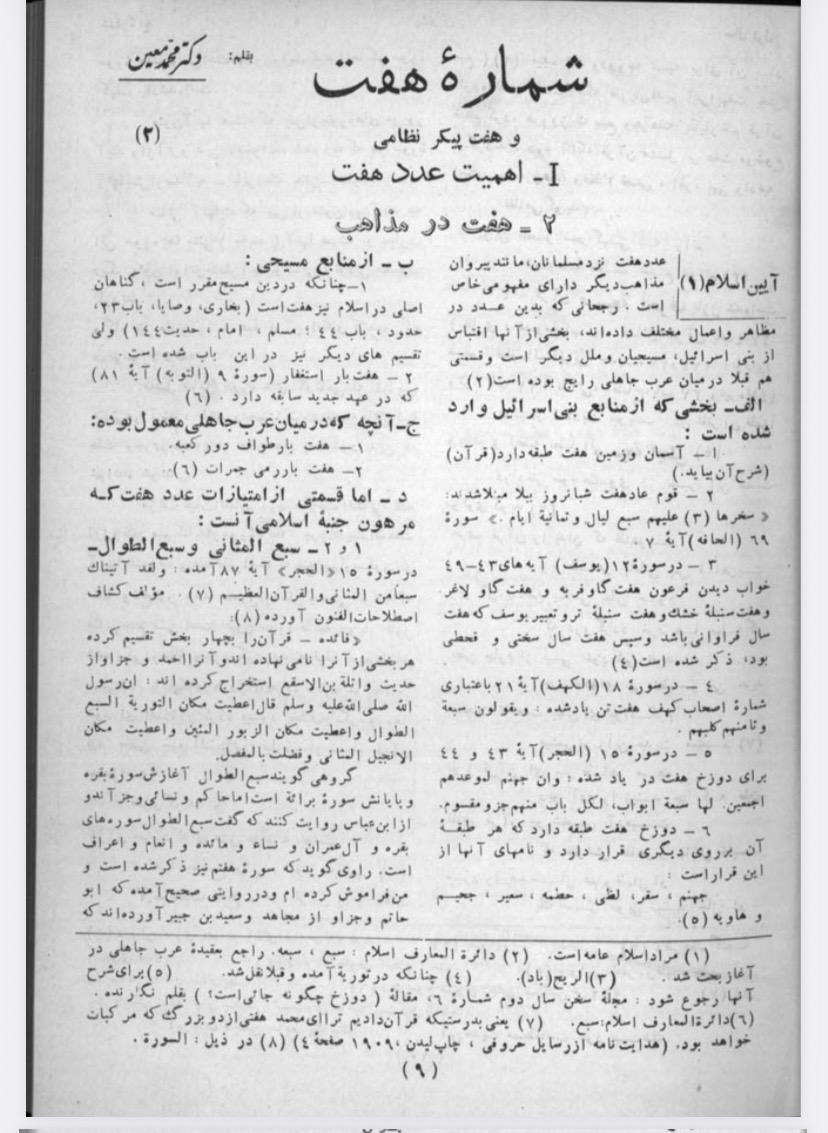 شمارهٔ هفت
بقلم: دکتر محمد معین
و هفت پیکر نظامی
(۲)
I ـ اهمیت عدد هفت
۲ ـ هفت در مذاهب
آیین اسلام (۱)
عدد هفت نزد مسلمانان، مانند پیروان
مذاهب دیگر دارای مفهومی خاص
است . رجحانی که بدین عدد در
مظاهر و اعمال مختلف داده‌اند، بخشی از آنها اقتباس
از بنی اسرائیل، مسیحیان و ملل دیگر است و قسمتی
هم قبلا در میان عرب جاهلی رایج بوده است (۲)
الف ـ بخشی که از منابع بنی اسرائیل وارد
شده است :
۱ ـ آسمان و زمین هفت طبقه دارد (قرآن)
(شرح آن بیاید.)
۲ ـ قوم عاد هفت شبانروز ببلا مبتلا شدند:
« سخرها (۳) علیهم سبع لیال و ثمانیة ایام .» سورهٔ
۶۹ (الحاقه) آیهٔ ۷ .
۳ ـ در سورهٔ ۱۲ (یوسف) آیه های ۴۳-۴۹
خواب دیدن فرعون هفت گاو فربه و هفت گاو لاغر
و هفت سنبلهٔ خشك و هفت سنبلهٔ تر و تعبیر یوسف که هفت
سال فراوانی باشد و سپس هفت سال سختی و قحطی
بود، ذکر شده است (۴)
۴ ـ در سورهٔ ۱۸ (الکهف) آیهٔ ۲۱ باعتباری
شمارهٔ اصحاب کهف هفت تن یاد شده : و یقولون سبعة
و ثامنهم کلبهم .
۵ ـ در سورهٔ ۱۵ (الحجر) آیهٔ ۴۳ و ۴۴
برای دوزخ هفت در یاد شده : وان جهنم لموعدهم
اجمعین. لها سبعة ابواب، لکل باب منهم جزو مقسوم.
۶ ـ دوزخ هفت طبقه دارد که هر طبقهٔ
آن بر روی دیگری قرار دارد و نامهای آنها از
این قرار است :
جهنم ، سقر، لظی ، حطمه ، سعیر ، جحیم
و هاویه (۵).
ب ـ از منابع مسیحی :
۱ ـ چنانکه در دین مسیح مقرر است ، گناهان
اصلی در اسلام نیز هفت است (بخاری، وصایا، باب ۲۳،
حدود ، باب ۴۴ ؛ مسلم ، امام ، حدیث ۱۴۴) ولی
تقسیم های دیگر نیز در این باب شده است .
۲ ـ هفت بار استغفار (سورهٔ ۹ (التوبه) آیهٔ ۸۱)
که در عهد جدید سابقه دارد . (۶)
ج ـ آنچه که در میان عرب جاهلی معمول بوده:
۱ ـ هفت بار طواف دور کعبه.
۲ ـ هفت بار رمی جمرات (۶).
د ـ اما قسمتی از امتیازات عدد هفت که
مرهون جنبهٔ اسلامی آنست :
۱ و ۲ ـ سبع المثانی و سبع الطوال ـ
در سورهٔ ۱۵ «الحجر» آیهٔ ۸۷ آمده : ولقد آتیناك
سبعا من المثانی و القرآن العظیم (۷) . مؤلف کشاف
اصطلاحات الفنون آورده (۸):
«فائده ـ قرآن را بچهار بخش تقسیم کرده
هر بخشی از آنرا نامی نهاده اند و آنرا احمد و جزاو از
حدیث واثلة بن الاسقع استخراج کرده اند : ان رسول
الله صلی الله علیه وسلم قال اعطیت مکان التوریة السبع
الطوال و اعطیت مکان الزبور المئین و اعطیت مکان
الانجیل المثانی و فضلت بالمفصل.
گروهی گویند سبع الطوال آغازش سورهٔ بقره
و پایانش سورهٔ برائة است اما حاکم و نسائی و جز آندو
از ابن عباس روایت کنند که گفت سبع الطوال سوره های
بقره و آل عمران و نساء و مائده و انعام و اعراف
است. راوی گوید که سورهٔ هفتم نیز ذکر شده است و
من فراموش کرده ام و در روایتی صحیح آمده که ابو
حاتم و جزاو از مجاهد و سعید بن جبیر آورده‌اند که
(۱) مراد اسلام عامه است. (۲) دائرة المعارف اسلام : سبع ، سبعه. راجع بعقیدهٔ عرب جاهلی در
آغاز بحث شد . (۳) الریح (باد). (۴) چنانکه در توریة آمده و قبلا نقل شد. (۵) برای شرح
آنها رجوع شود : مجلهٔ سخن سال دوم شمارهٔ ۶، مقالهٔ ( دوزخ چگونه جائی است؟ ) بقلم نگارنده .
(۶) دائرة المعارف اسلام: سبع. (۷) یعنی بدرستیکه قرآن دادیم ترا ای محمد هفتی از دو بزرگ که مرکبات
خواهد بود. (هدایت نامه از رسایل حروفی ، چاپ لیدن ، ۱۹۰۹ صفحهٔ ۴) (۸) در ذیل : السورة .
(۹)